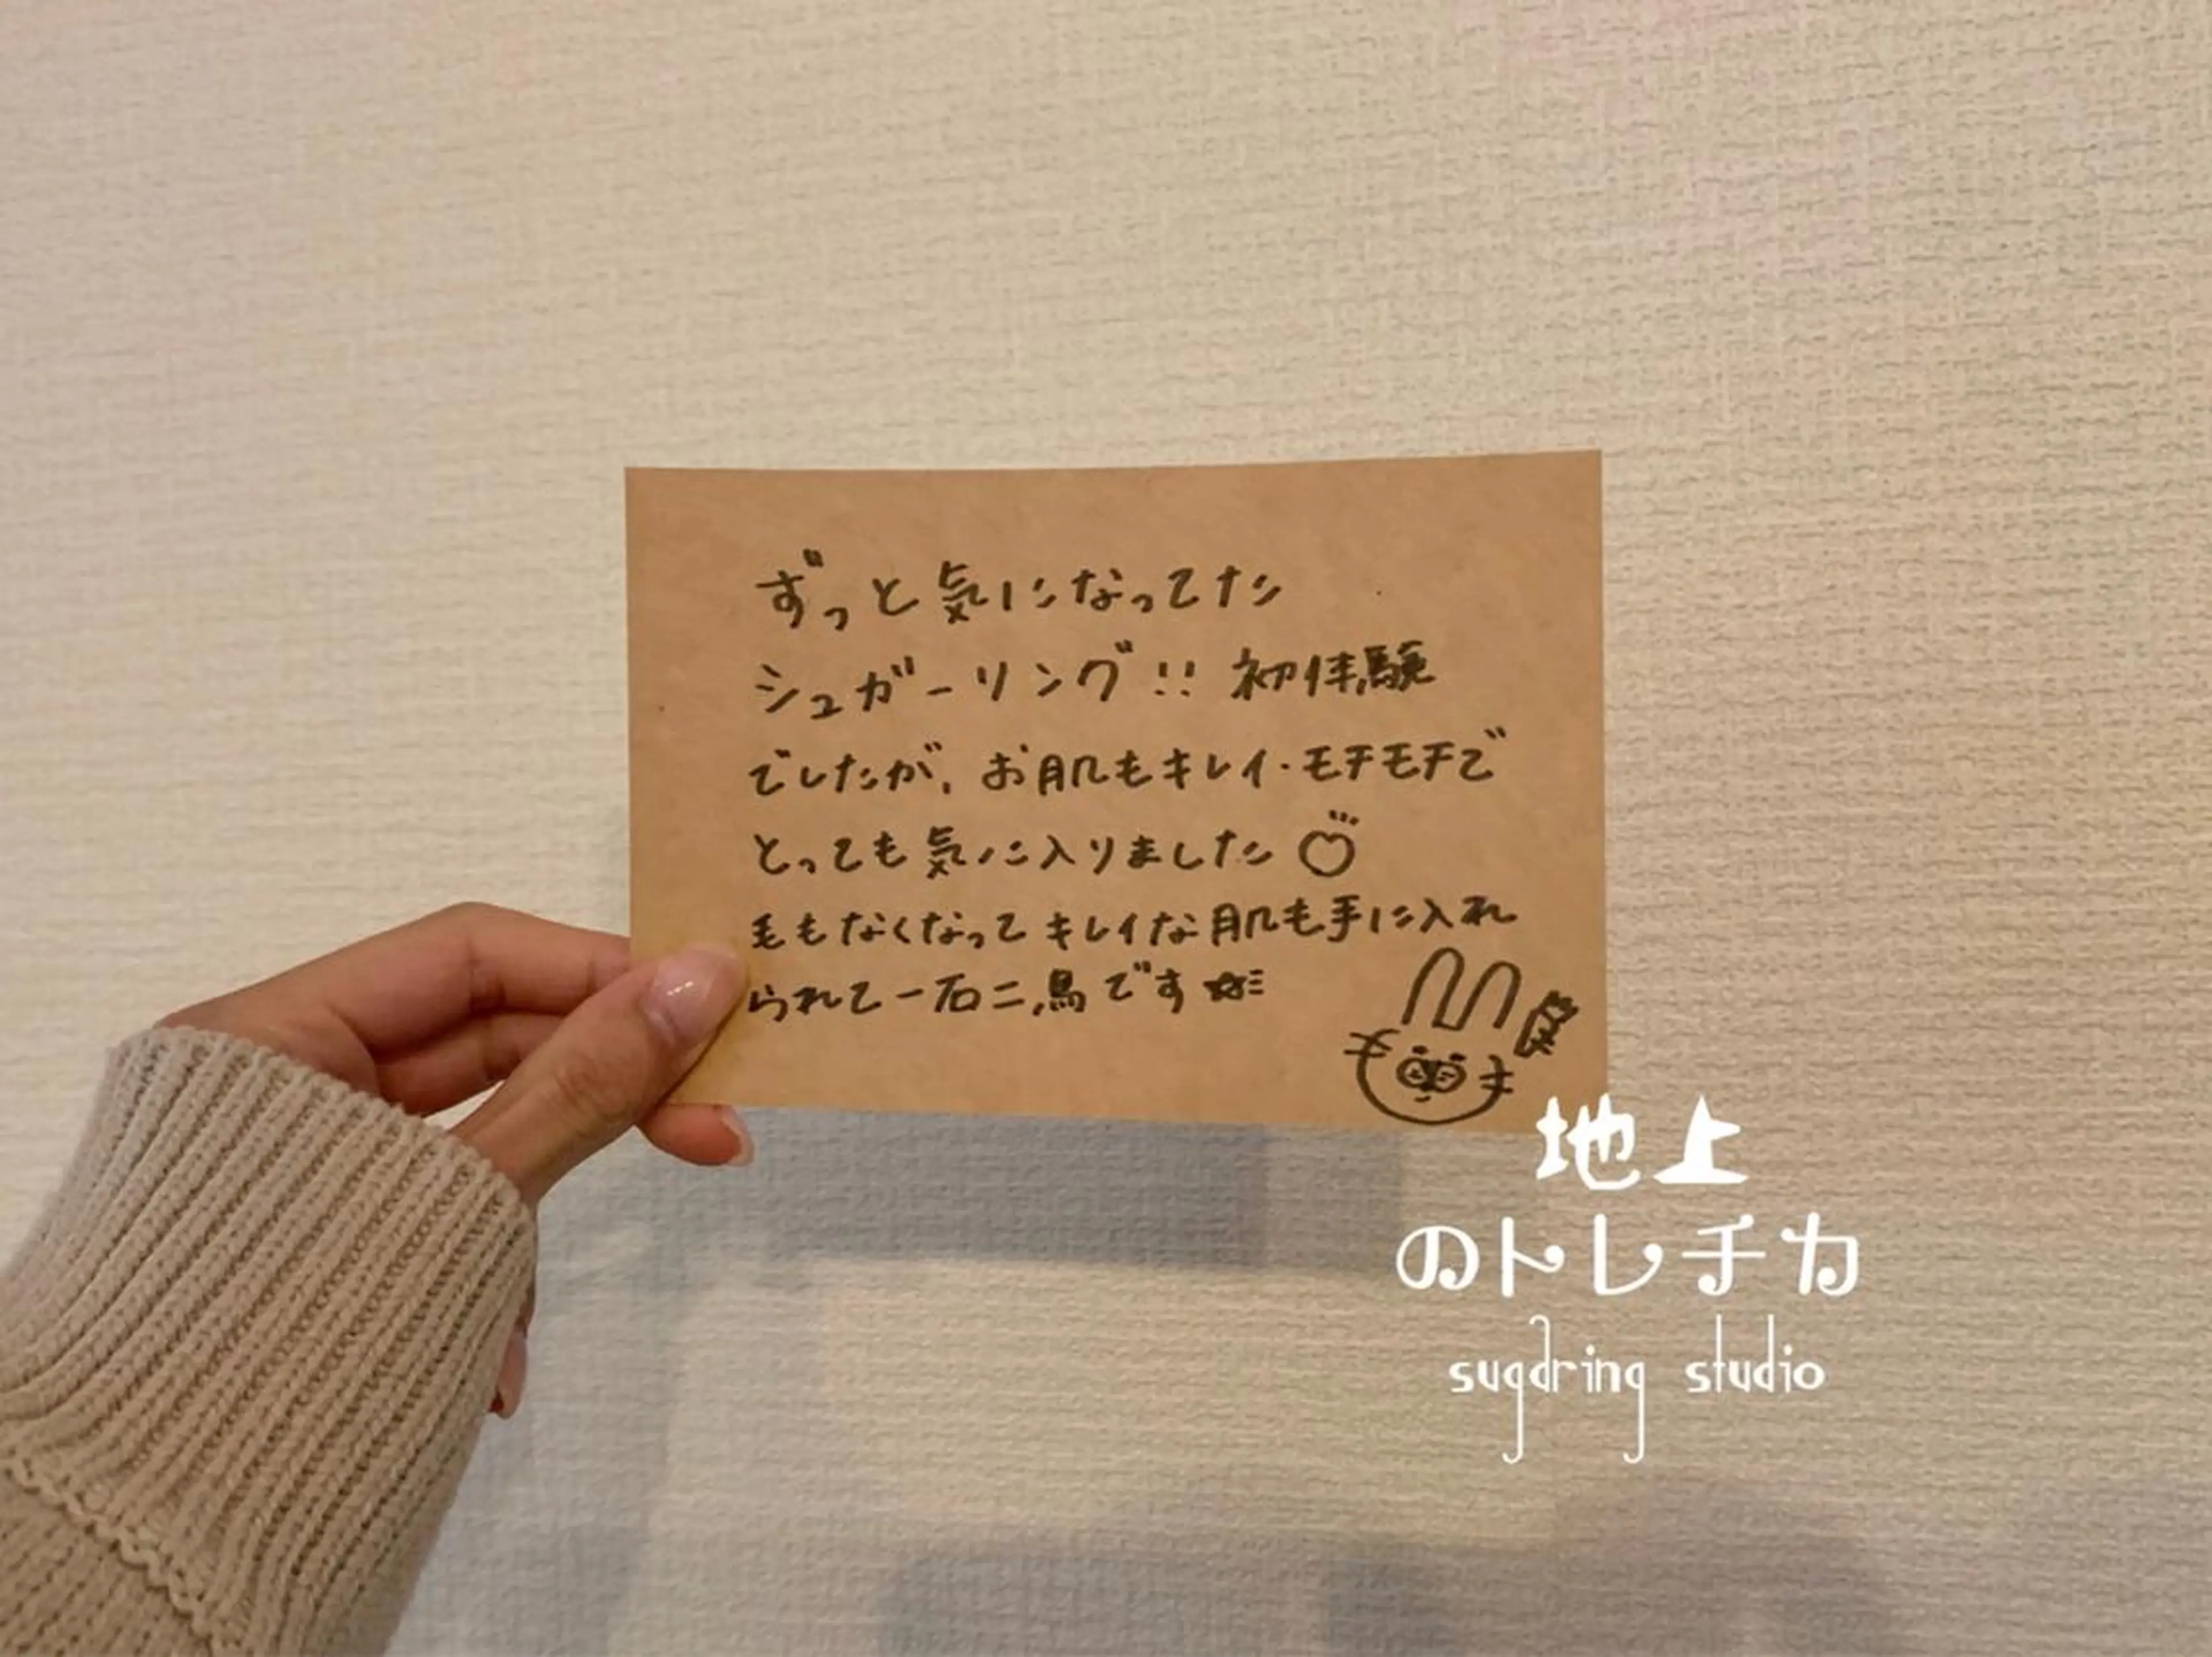 ずっと気になってた
シュガーリング!! 初体験
でしたが、お肌もキレイ・モチモチで
とっても気に入りました♡
毛もなくなってキレイな肌も手に入れ
られて一石二鳥です☆
地上
のトレチカ
sugaring studio